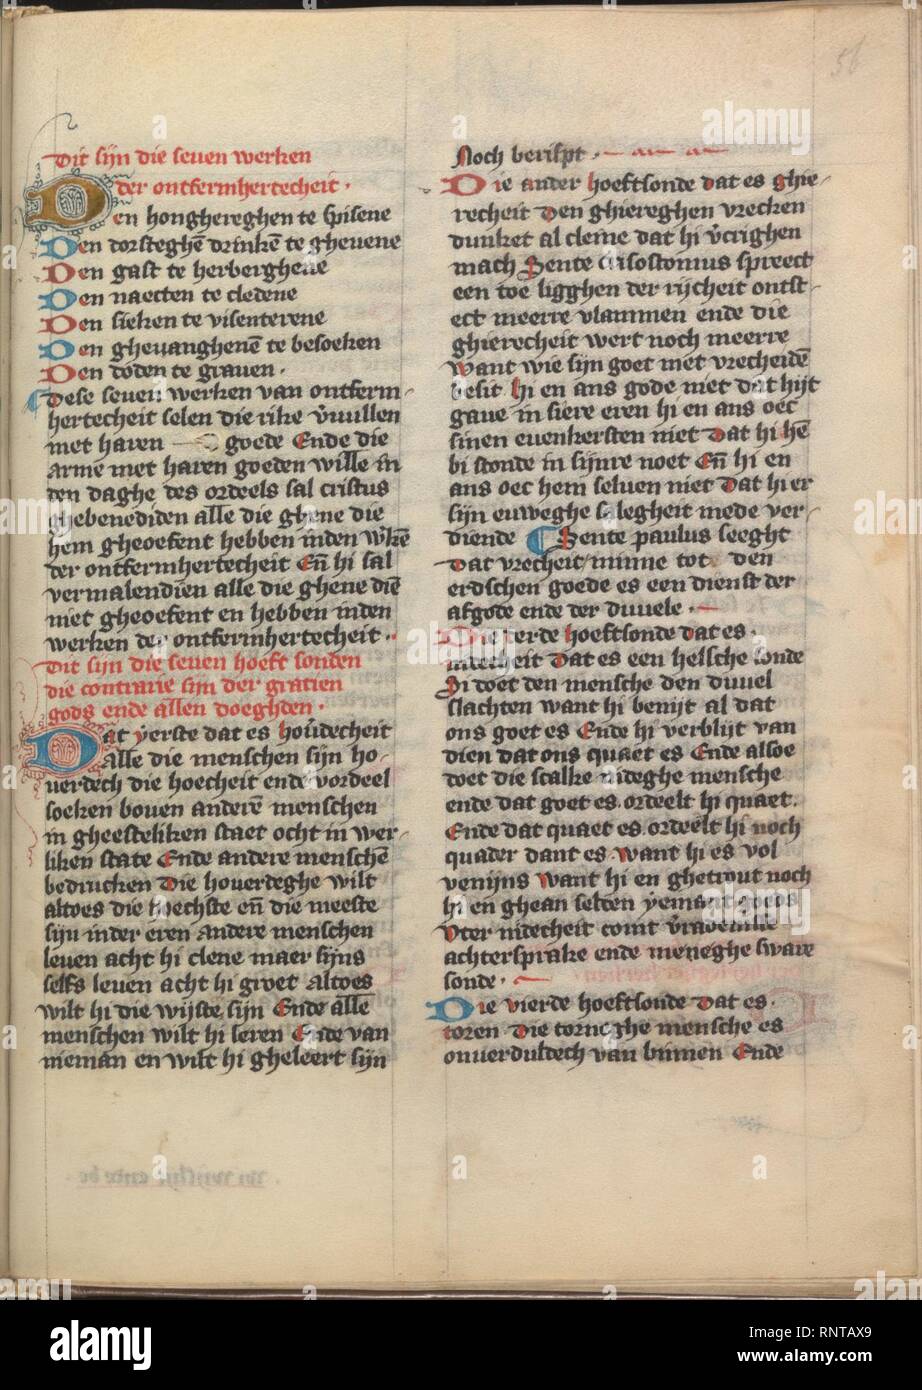 56
Dit sijn die seuen werken
der ontfermhertecheit .
Den honghereghen te spisene
Den dorsteghē drinkē te gheuene
Den gast te herberghene
Den naecten te cledene
Den sieken te visenterene
Den gheuanghenē te besoeken
Den doden te grauen .
Dese seuen werken van ontferm
hertecheit selen die rike v̄uullen
met haren goede Ende die
arme met haren goeden wille in
den daghe des ordeels sal cristus
ghebenediden alle die ghene die
hem gheoefent hebben inden w̄kē
der ontfermhertecheit Eñ hi sal
vermalendien alle die ghene diē
niet gheoefent en hebben inden
werken der ontfermhertecheit .
Dit sijn die seuen hoeft sonden
die contrarie sijn der gratien
gods ende allen doeghden .
Dat yerste dat es hou̅decheit
alle die menschen sijn ho-
uerdech die hoecheit ende vordeel
soeken bouen anderē menschen
in gheesteliken staet ocht in wer-
liken state Ende andere menschē
bedrucken Die houerdeghe wilt
altoes die hoechste eñ die meeste
sijn inder eren andere menschen
leuen acht hi clene maer sijns
selfs leuen acht hi groet altoes
wilt hi die wijste sijn Ende alle
menschen wilt hi leren Ende van
nieman en wilt hi gheleert sijn
Noch berispt .
Die ander hoeftsonde dat es ghie-
recheit Den ghiereghen vrecken
dunket al cleine dat hi v̄crighen
mach Sente crisostomus spreect
een toe ligghen der rijcheit ontst-
ect meerre vlammen ende die
ghierecheit wert noch meerre
want wie sijn goet met vrecheidē
besit hi en ans gode niet dat hijt
gaue in siere eren hi en ans oec
sinen euenkersten niet Dat hi hē
bi stonde in sijnre noet Eñ hi en
ans oec hem seluen niet Dat hi er
sijn euweghe salegheit mede ver-
diende Sente paulus seeght
Dat vrecheit minne tot den
erdschen goede es een dienst der
afgode ende der duuele .
Die derde hoeftsonde dat es .
nidecheit Dat es een helsche sonde
Si doet den mensche den duuel
slachten want hi benijt al dat
ons goet es Ende hi verblijt van
dien dat ons quaet es Ende alsoe
doet die scalke nideghe mensche
ende dat goet es . ordeelt hi quaet .
Ende dat quaet es . ordeelt hi noch
quader dant es . want hi es vol
venijns want hi en ghetrout noch
hi en ghean selden yemant goeds
Vter nidecheit comt
achtersprake ende meneghe sware
sonde .
Die vierde hoeftsonde Dat es .
toren . Die torneghe mensche es
onuerduldech van binnen Ende
alamy
Image ID: RNTAX9
www.alamy.com